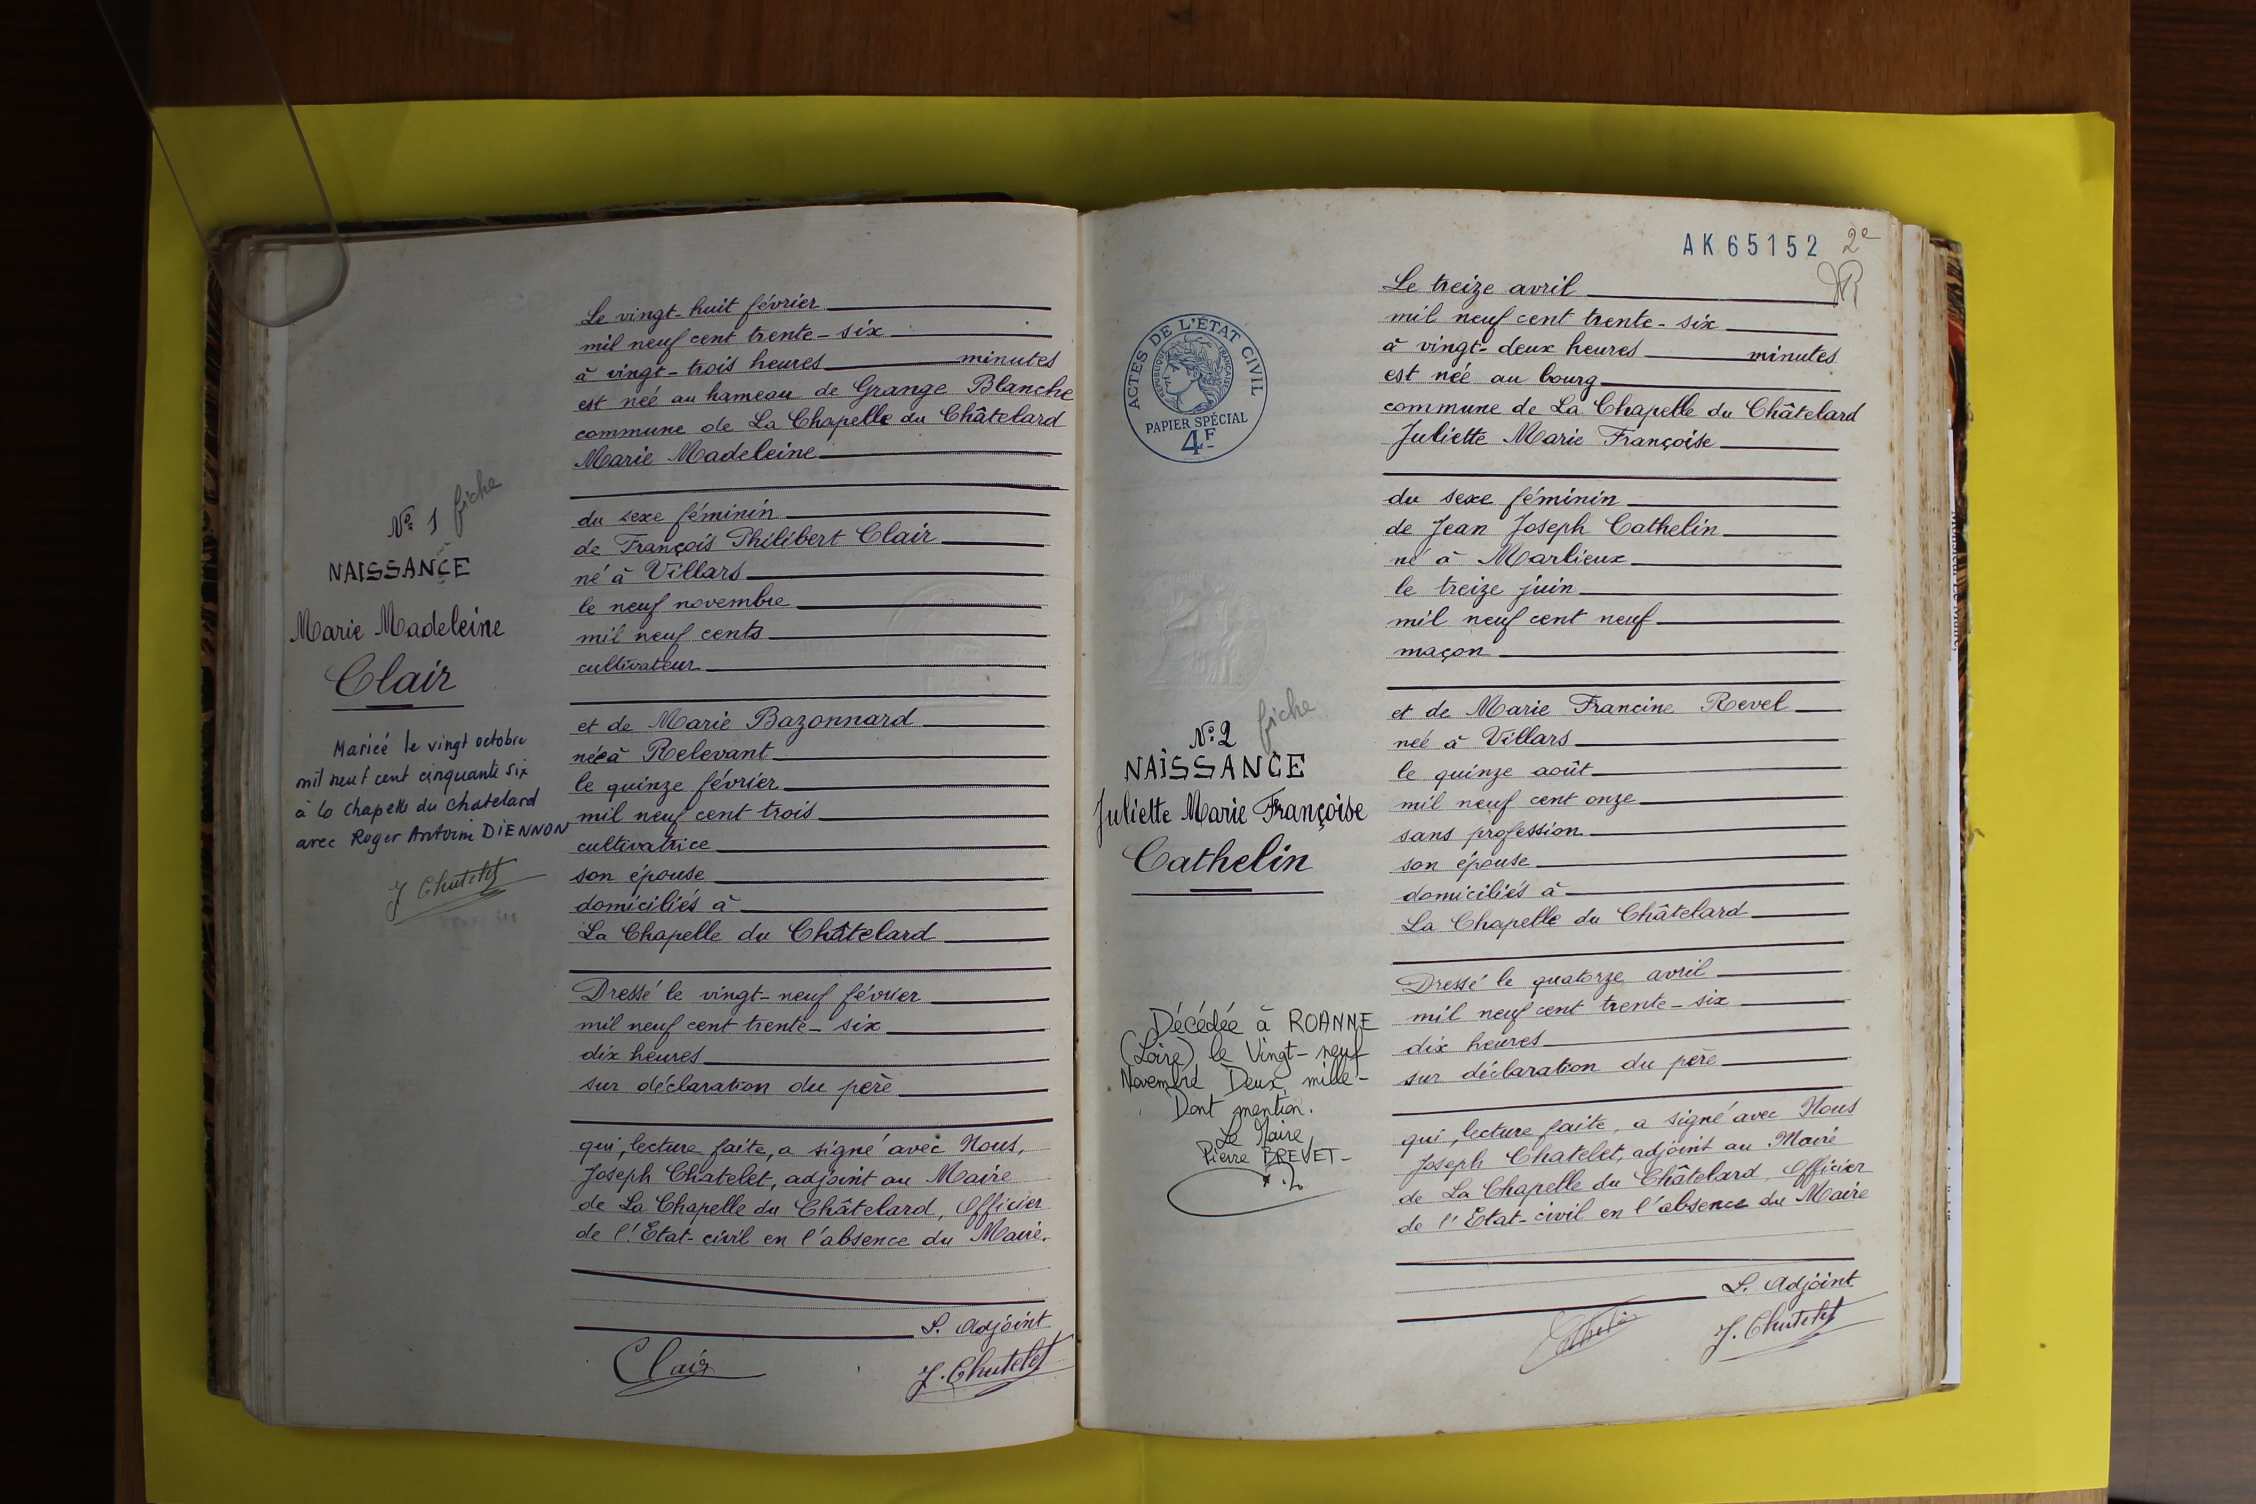 Nº 1 fiche
NAISSANCE
Marie Madeleine
Clair
Mariée le vingt octobre
mil neuf cent cinquante six
à la Chapelle du Chatelard
avec Roger Antoine DIENNON
J. Chatelet
Le vingt-huit février
mil neuf cent trente-six
à vingt-trois heures minutes
est née au hameau de Grange Blanche
commune de La Chapelle du Châtelard
Marie Madeleine
du sexe féminin
de François Philibert Clair
né à Villars
le neuf novembre
mil neuf cents
cultivateur
et de Marie Bazonnard
née à Relevant
le quinze février
mil neuf cent trois
cultivatrice
son épouse
domiciliés à
La Chapelle du Châtelard
Dressé le vingt-neuf février
mil neuf cent trente-six
dix heures
sur déclaration du père
qui, lecture faite, a signé avec Nous,
Joseph Chatelet, adjoint au Maire
de La Chapelle du Châtelard, Officier
de l'Etat-civil en l'absence du Maire.
L. Adjoint
Clair J. Chatelet
AK 65152 2e
ACTES DE L'ÉTAT CIVIL
RÉPUBLIQUE FRANÇAISE
PAPIER SPÉCIAL
4F
Nº 2 fiche
NAISSANCE
Juliette Marie Françoise
Cathelin
Décédée à ROANNE
(Loire) le Vingt-neuf
Novembre Deux mille-
Dont mention.
Le Maire
Pierre BREVET-
Le treize avril
mil neuf cent trente-six
à vingt-deux heures minutes
est née au bourg
commune de La Chapelle du Châtelard
Juliette Marie Françoise
du sexe féminin
de Jean Joseph Cathelin
né à Marlieux
le treize juin
mil neuf cent neuf
maçon
et de Marie Francine Revel
née à Villars
le quinze août
mil neuf cent onze
sans profession
son épouse
domiciliés à
La Chapelle du Châtelard
Dressé le quatorze avril
mil neuf cent trente-six
dix heures
sur déclaration du père
qui, lecture faite, a signé avec Nous
Joseph Chatelet, adjoint au Maire
de La Chapelle du Châtelard, Officier
de l'Etat-civil en l'absence du Maire
L. Adjoint
J. Chatelet